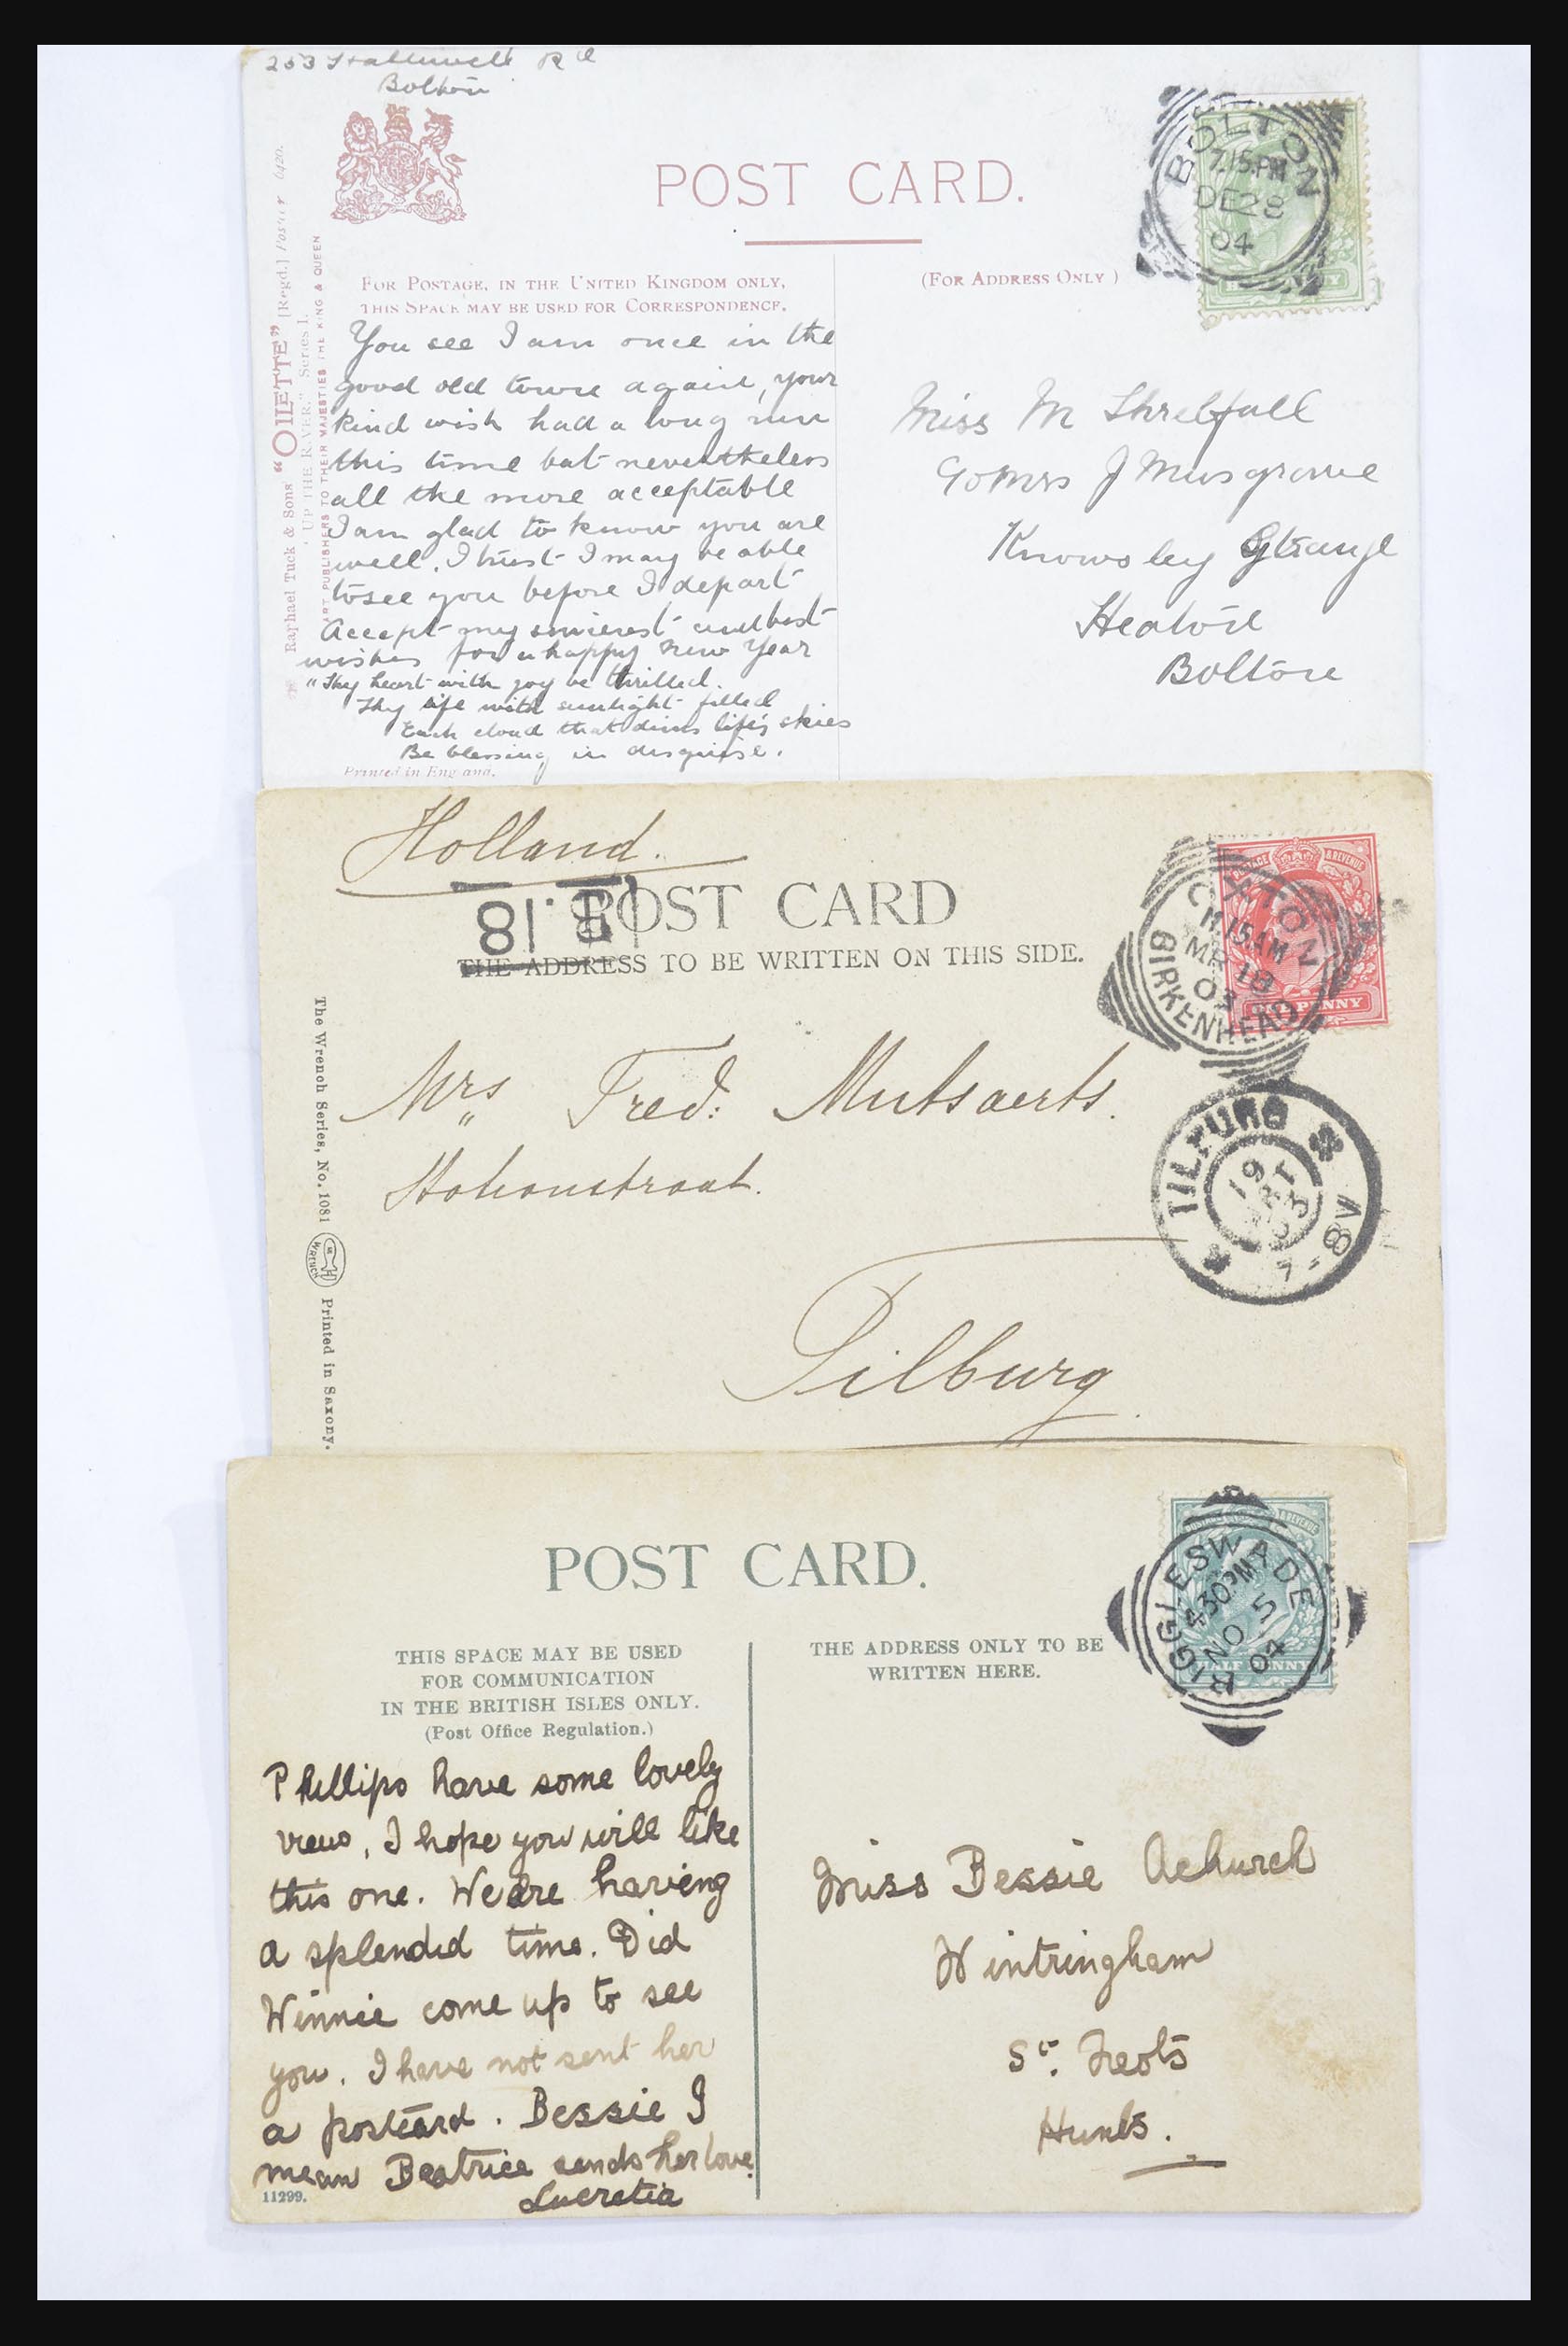 253 Halliwell Rd
Bolton
POST CARD.
BOLTON
7.15.PM
DE 28
04
FOR POSTAGE, IN THE UNITED KINGDOM ONLY,
THIS SPACE MAY BE USED FOR CORRESPONDENCE.
(FOR ADDRESS ONLY)
Raphael Tuck & Sons' "OILETTE" [Regd.] Postcard 6420.
"UP THE RIVER." Series I.
ART PUBLISHERS TO THEIR MAJESTIES THE KING & QUEEN
You see I am once in the
good old town again, your
kind wish had a long run
this time but nevertheless
all the more acceptable
I am glad to know you are
well. I trust I may be able
to see you before I depart
Accept my sincerest and best
wishes for a happy New Year
"Thy heart with joy be thrilled.
Thy life with sunlight filled
Each cloud that dims life's skies
Be blessing in disguise.
Printed in England.
Miss M Threlfall
c/o Mrs J Musgrove
Knowsley Grange
Heaton
Bolton
Holland.
POST CARD
THE ADDRESS TO BE WRITTEN ON THIS SIDE.
OXTON
11.15AM
MR 18
03
BIRKENHEAD
ONE PENNY
Mrs Fred: Mutsaerts.
Tilburg
TILBURG
19
MRT
03
7-8V
The Wrench Series, No. 1081
WRENCH
Printed in Saxony.
POST CARD.
BIGGLESWADE
4.30PM
NO 5
04
HALF PENNY
THIS SPACE MAY BE USED
FOR COMMUNICATION
IN THE BRITISH ISLES ONLY.
(Post Office Regulation.)
THE ADDRESS ONLY TO BE
WRITTEN HERE.
Phillips have some lovely
views, I hope you will like
this one. We are having
a splendid time. Did
Winnie come up to see
you. I have not sent her
a postcard. Bessie I
mean Beatrice sends her love.
Lucretia
11299.
Miss Bessie Achurch
Wintringham
St. Neots
Hunts.